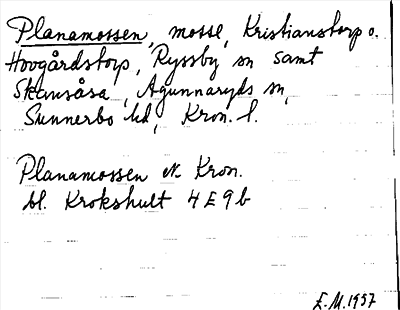 Planamossen, mosse, Kristianstorp o.
Hovgårdstorp, Ryssby sn samt
Skansåsa, Agunnaryds sn,
Sunnerbo hd, Kron. l.
Planamossen ek Kron.
bl. Krokshult 4E9b
E.M. 1957